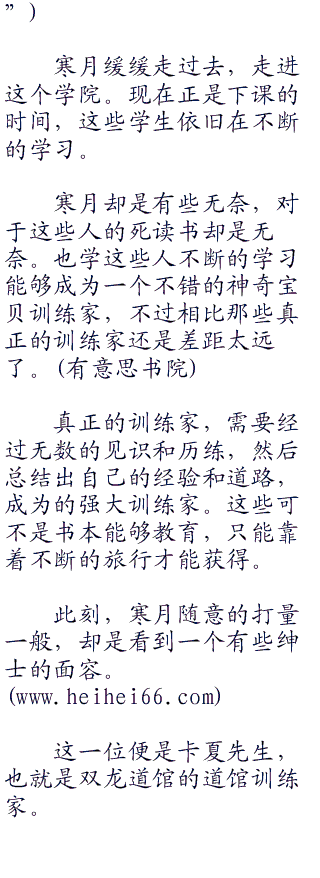 ”)
寒月缓缓走过去，走进
这个学院。现在正是下课的
时间，这些学生依旧在不断
的学习。
寒月却是有些无奈，对
于这些人的死读书却是无
奈。也学这些人不断的学习
能够成为一个不错的神奇宝
贝训练家，不过相比那些真
正的训练家还是差距太远
了。(有意思书院)
真正的训练家，需要经
过无数的见识和历练，然后
总结出自己的经验和道路，
成为的强大训练家。这些可
不是书本能够教育，只能靠
着不断的旅行才能获得。
此刻，寒月随意的打量
一般，却是看到一个有些绅
士的面容。
(www.heihei66.com)
这一位便是卡夏先生，
也就是双龙道馆的道馆训练
家。